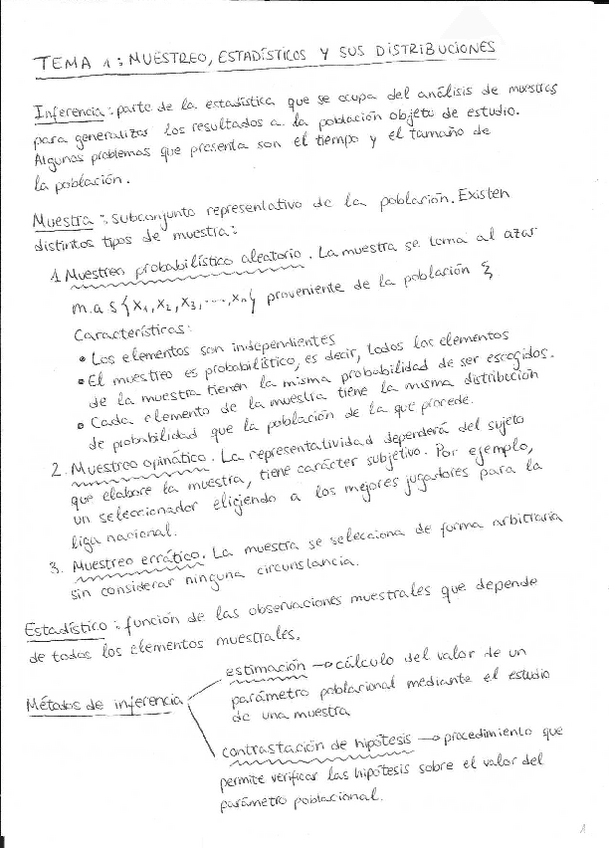 TEMA 1: MUESTREO, ESTADÍSTICOS Y SUS DISTRIBUCIONES
Inferencia: parte de la estadística que se ocupa del análisis de muestras
para generalizar los resultados a la población objeto de estudio.
Algunos problemas que presenta son el tiempo y el tamaño de
la población.
Muestra: subconjunto representativo de la población. Existen
distintos tipos de muestra:
1 Muestreo probabilístico aleatorio. La muestra se toma al azar
m.a.s {x1, x2, x3, ..., xn} proveniente de la población ξ
Características:
• Los elementos son independientes
• El muestreo es probabilístico, es decir, todos los elementos
de la muestra tienen la misma probabilidad de ser escogidos.
• Cada elemento de la muestra tiene la misma distribución
de probabilidad que la población de la que procede.
2. Muestreo opinático. La representatividad dependerá del sujeto
que elabore la muestra, tiene carácter subjetivo. Por ejemplo,
un seleccionador eligiendo a los mejores jugadores para la
liga nacional.
3. Muestreo errático. La muestra se selecciona de forma arbitraria
sin considerar ninguna circunstancia.
Estadístico: función de las observaciones muestrales que depende
de todos los elementos muestrales.
Métodos de inferencia
estimación → cálculo del valor de un
parámetro poblacional mediante el estudio
de una muestra
contrastación de hipótesis → procedimiento que
permite verificar las hipótesis sobre el valor del
parámetro poblacional.
1